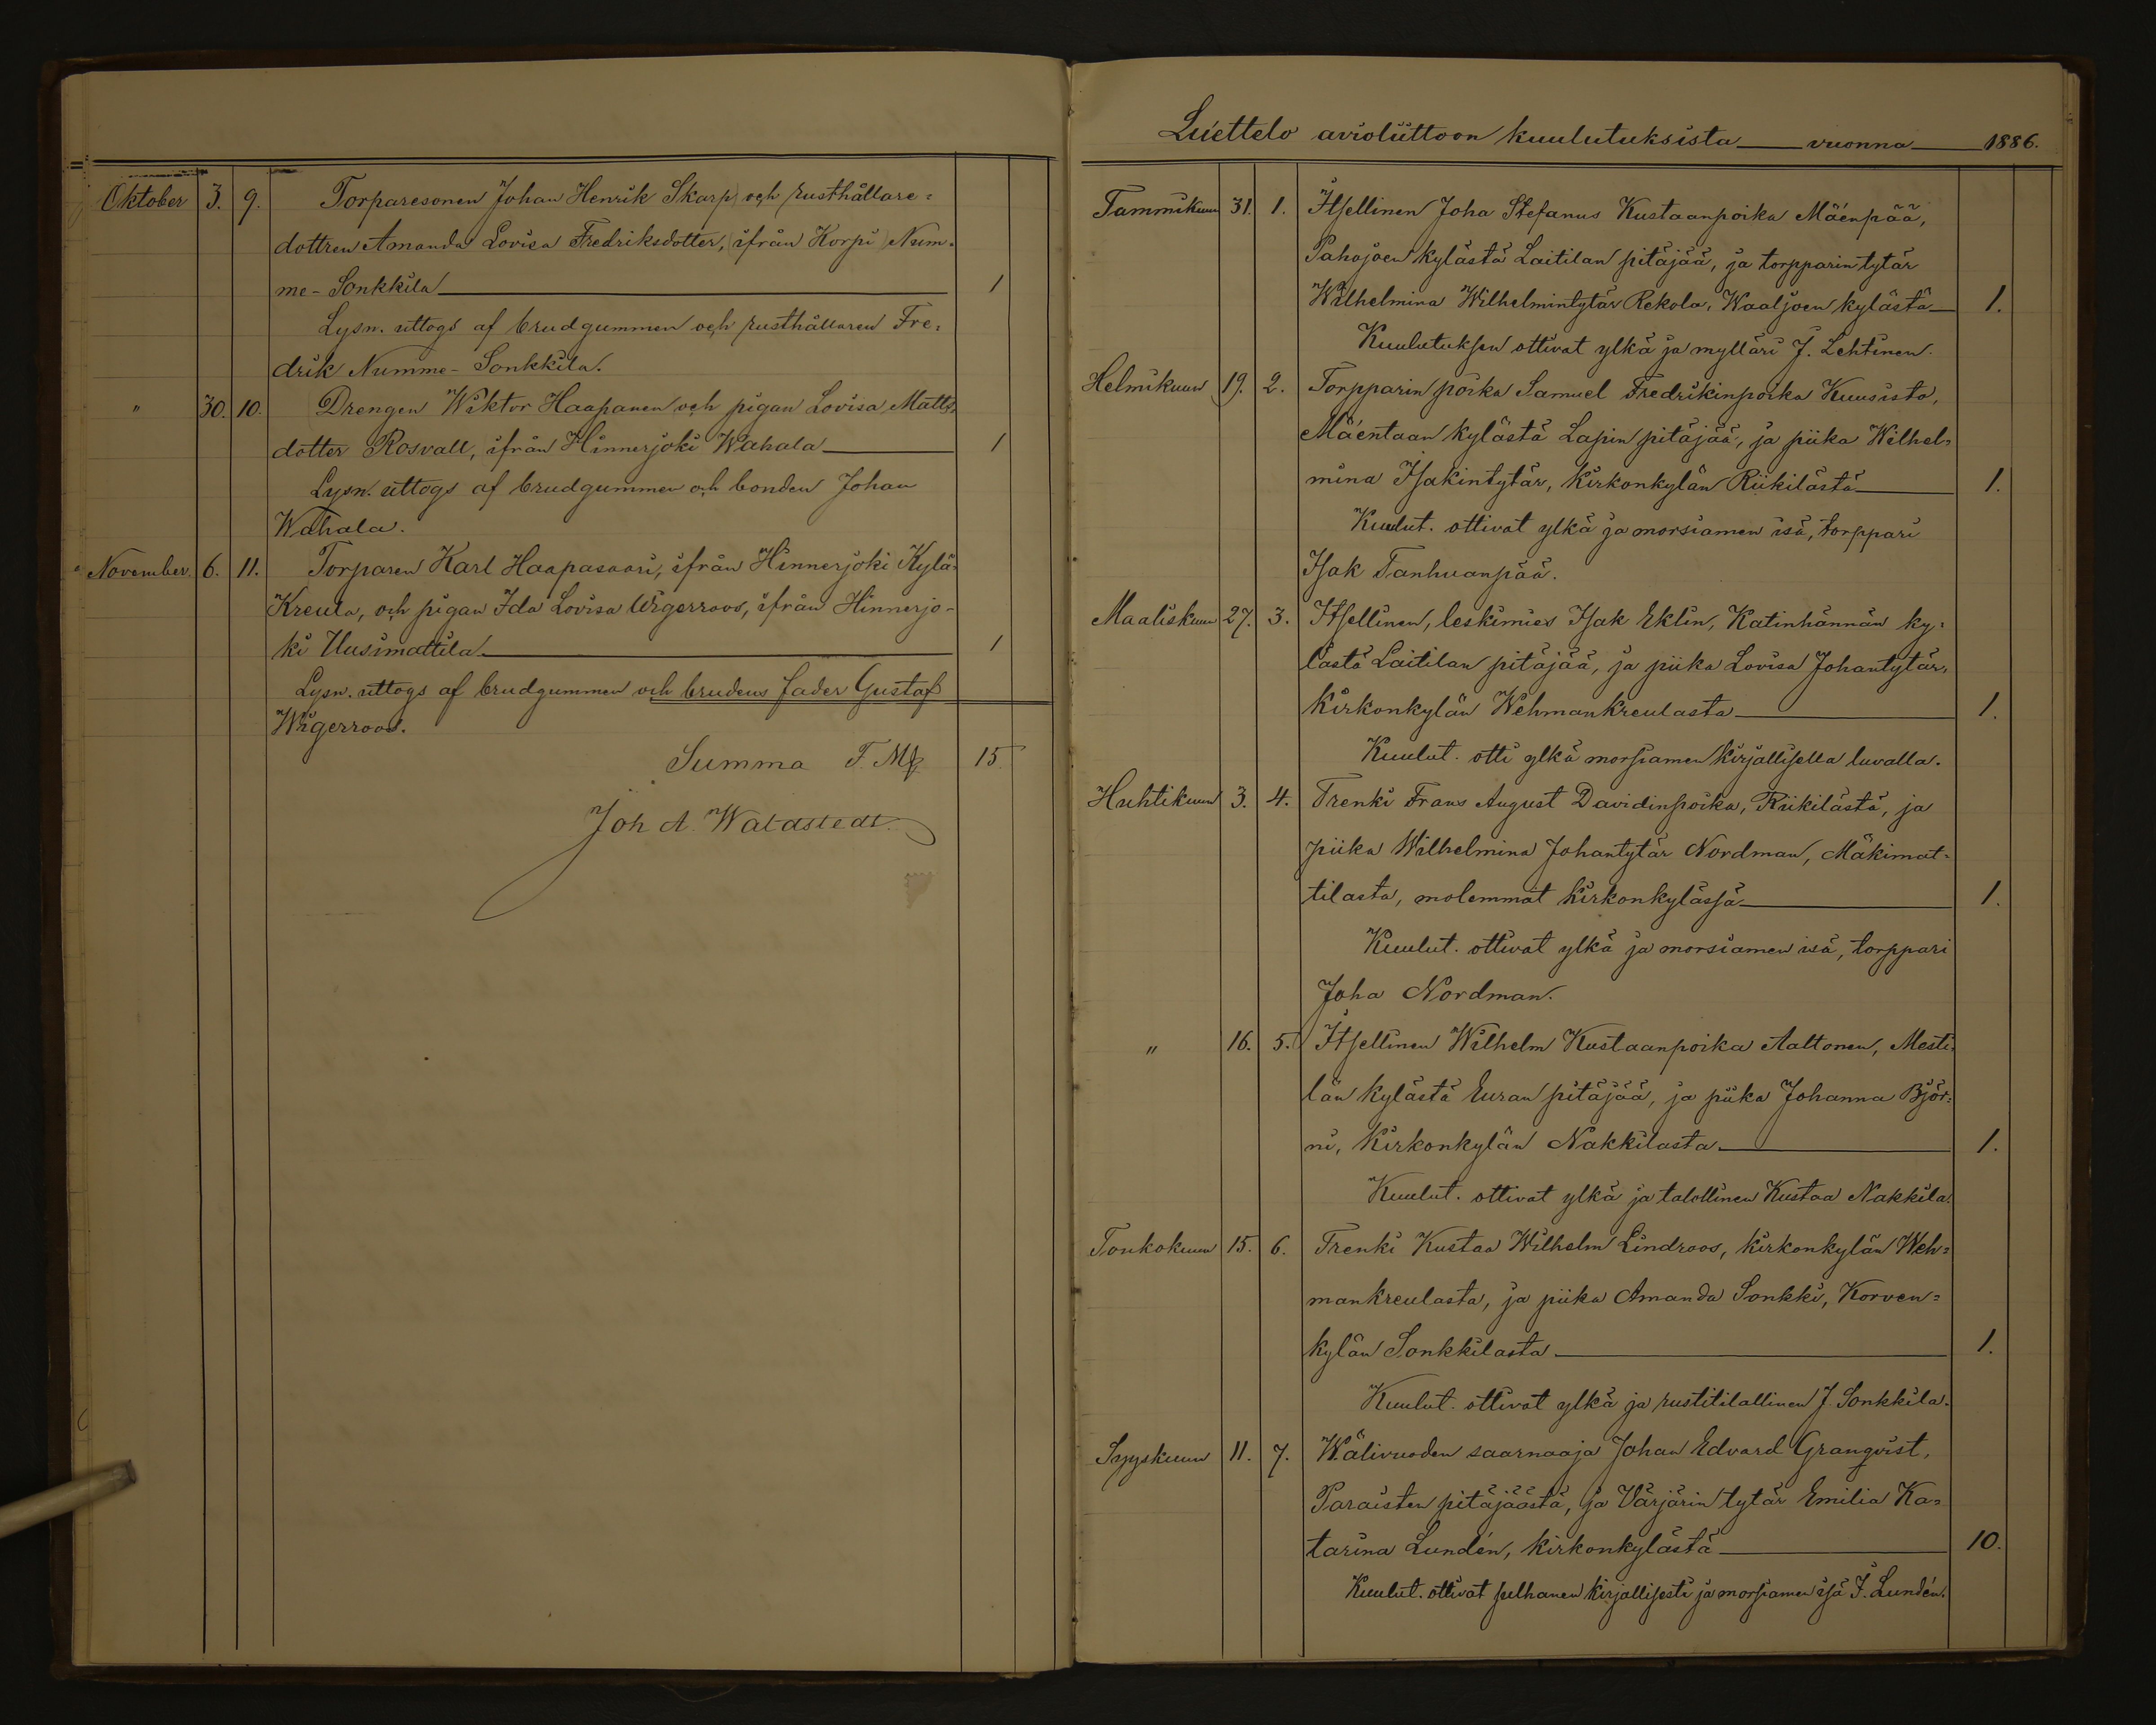 Oktober 3. 9. Torparesonen Johan Henrik Skarp och rusthållare-
dottren Amanda Lovisa Fredriksdotter, ifrån Korpi Num-
me-Sonkkila 1
Lysn. uttogs af brudgummen och rusthållaren Fre-
drik Numme-Sonkkila.
" 30. 10. Drengen Wiktor Haapanen och pigan Lovisa Matts-
dotter Rosvall, ifrån Hinnerjoki Wahala 1
Lysn. uttogs af brudgummen och bonden Johan
Wahala.
November 6. 11. Torparen Karl Haapasaari, ifrån Hinnerjoki Kylä-
Kreula, och pigan Ida Lovisa Wigerroos, ifrån Hinnerjo-
ki Uusimattila 1
Lysn. uttogs af brudgummen och brudens fader Gustaf
Wigerroos.
Summa F. Mk 15
Joh A. Waldstedt.
Luettelo avioliittoon kuulutuksista vuonna 1886.
Tammikuun 31. 1. Itsellinen Joha Stefanus Kustaanpoika Mäenpää,
Pahojoen kylästä Laitilan pitäjää, ja torpparin tytär
Wilhelmina Wilhelmintytär Rekola, Waaljoen kylästä 1.
Kuulutuksen ottivat ylkä ja mylläri J. Lehtinen.
Helmikuun 19. 2. Torpparin poika Samuel Fredrikinpoika Kuusisto,
Mäentaan kylästä Lapin pitäjää, ja piika Wilhel-
mina Isakintytär, Kirkonkylän Riikilästä 1.
Kuulut. ottivat ylkä ja morsiamen isä, torppari
Isak Tanhuanpää.
Maaliskuun 27. 3. Itsellinen, leskimies Isak Eklin, Katinhännän ky-
lästä Laitilan pitäjää, ja piika Lovisa Johantytär,
Kirkonkylän Wehmankreulasta 1.
Kuulut. otti ylkä morsiamen kirjallisella luvalla.
Huhtikuun 3. 4. Trenki Frans August Davidinpoika, Riikilästä, ja
piika Wilhelmina Johantytär Nordman, Mäkimat-
tilasta, molemmat Kirkonkylässä 1.
Kuulut. ottivat ylkä ja morsiamen isä, torppari
Joha Nordman.
" 16. 5. Itsellinen Wilhelm Kustaanpoika Aaltonen, Mesti-
län kylästä Euran pitäjää, ja piika Johanna Björ-
ni, Kirkonkylän Nakkilasta 1.
Kuulut. ottivat ylkä ja talollinen Kustaa Nakkila.
Toukokuun 15. 6. Trenki Kustaa Wilhelm Lindroos, kirkonkylän Weh-
mankreulasta, ja piika Amanda Sonkki, Korven-
kylän Sonkkilasta 1.
Kuulut. ottivat ylkä ja rustitilallinen J. Sonkkila.
Syyskuun 11. 7. Wälivuoden saarnaaja Johan Edvard Granqvist,
Paraisten pitäjäästä, ja Värjärin tytär Emilia Ka-
tarina Lundén, kirkonkylästä 10.
Kuulut. ottivat sulhanen kirjallisesti ja morsiamen isä J. Lundén.